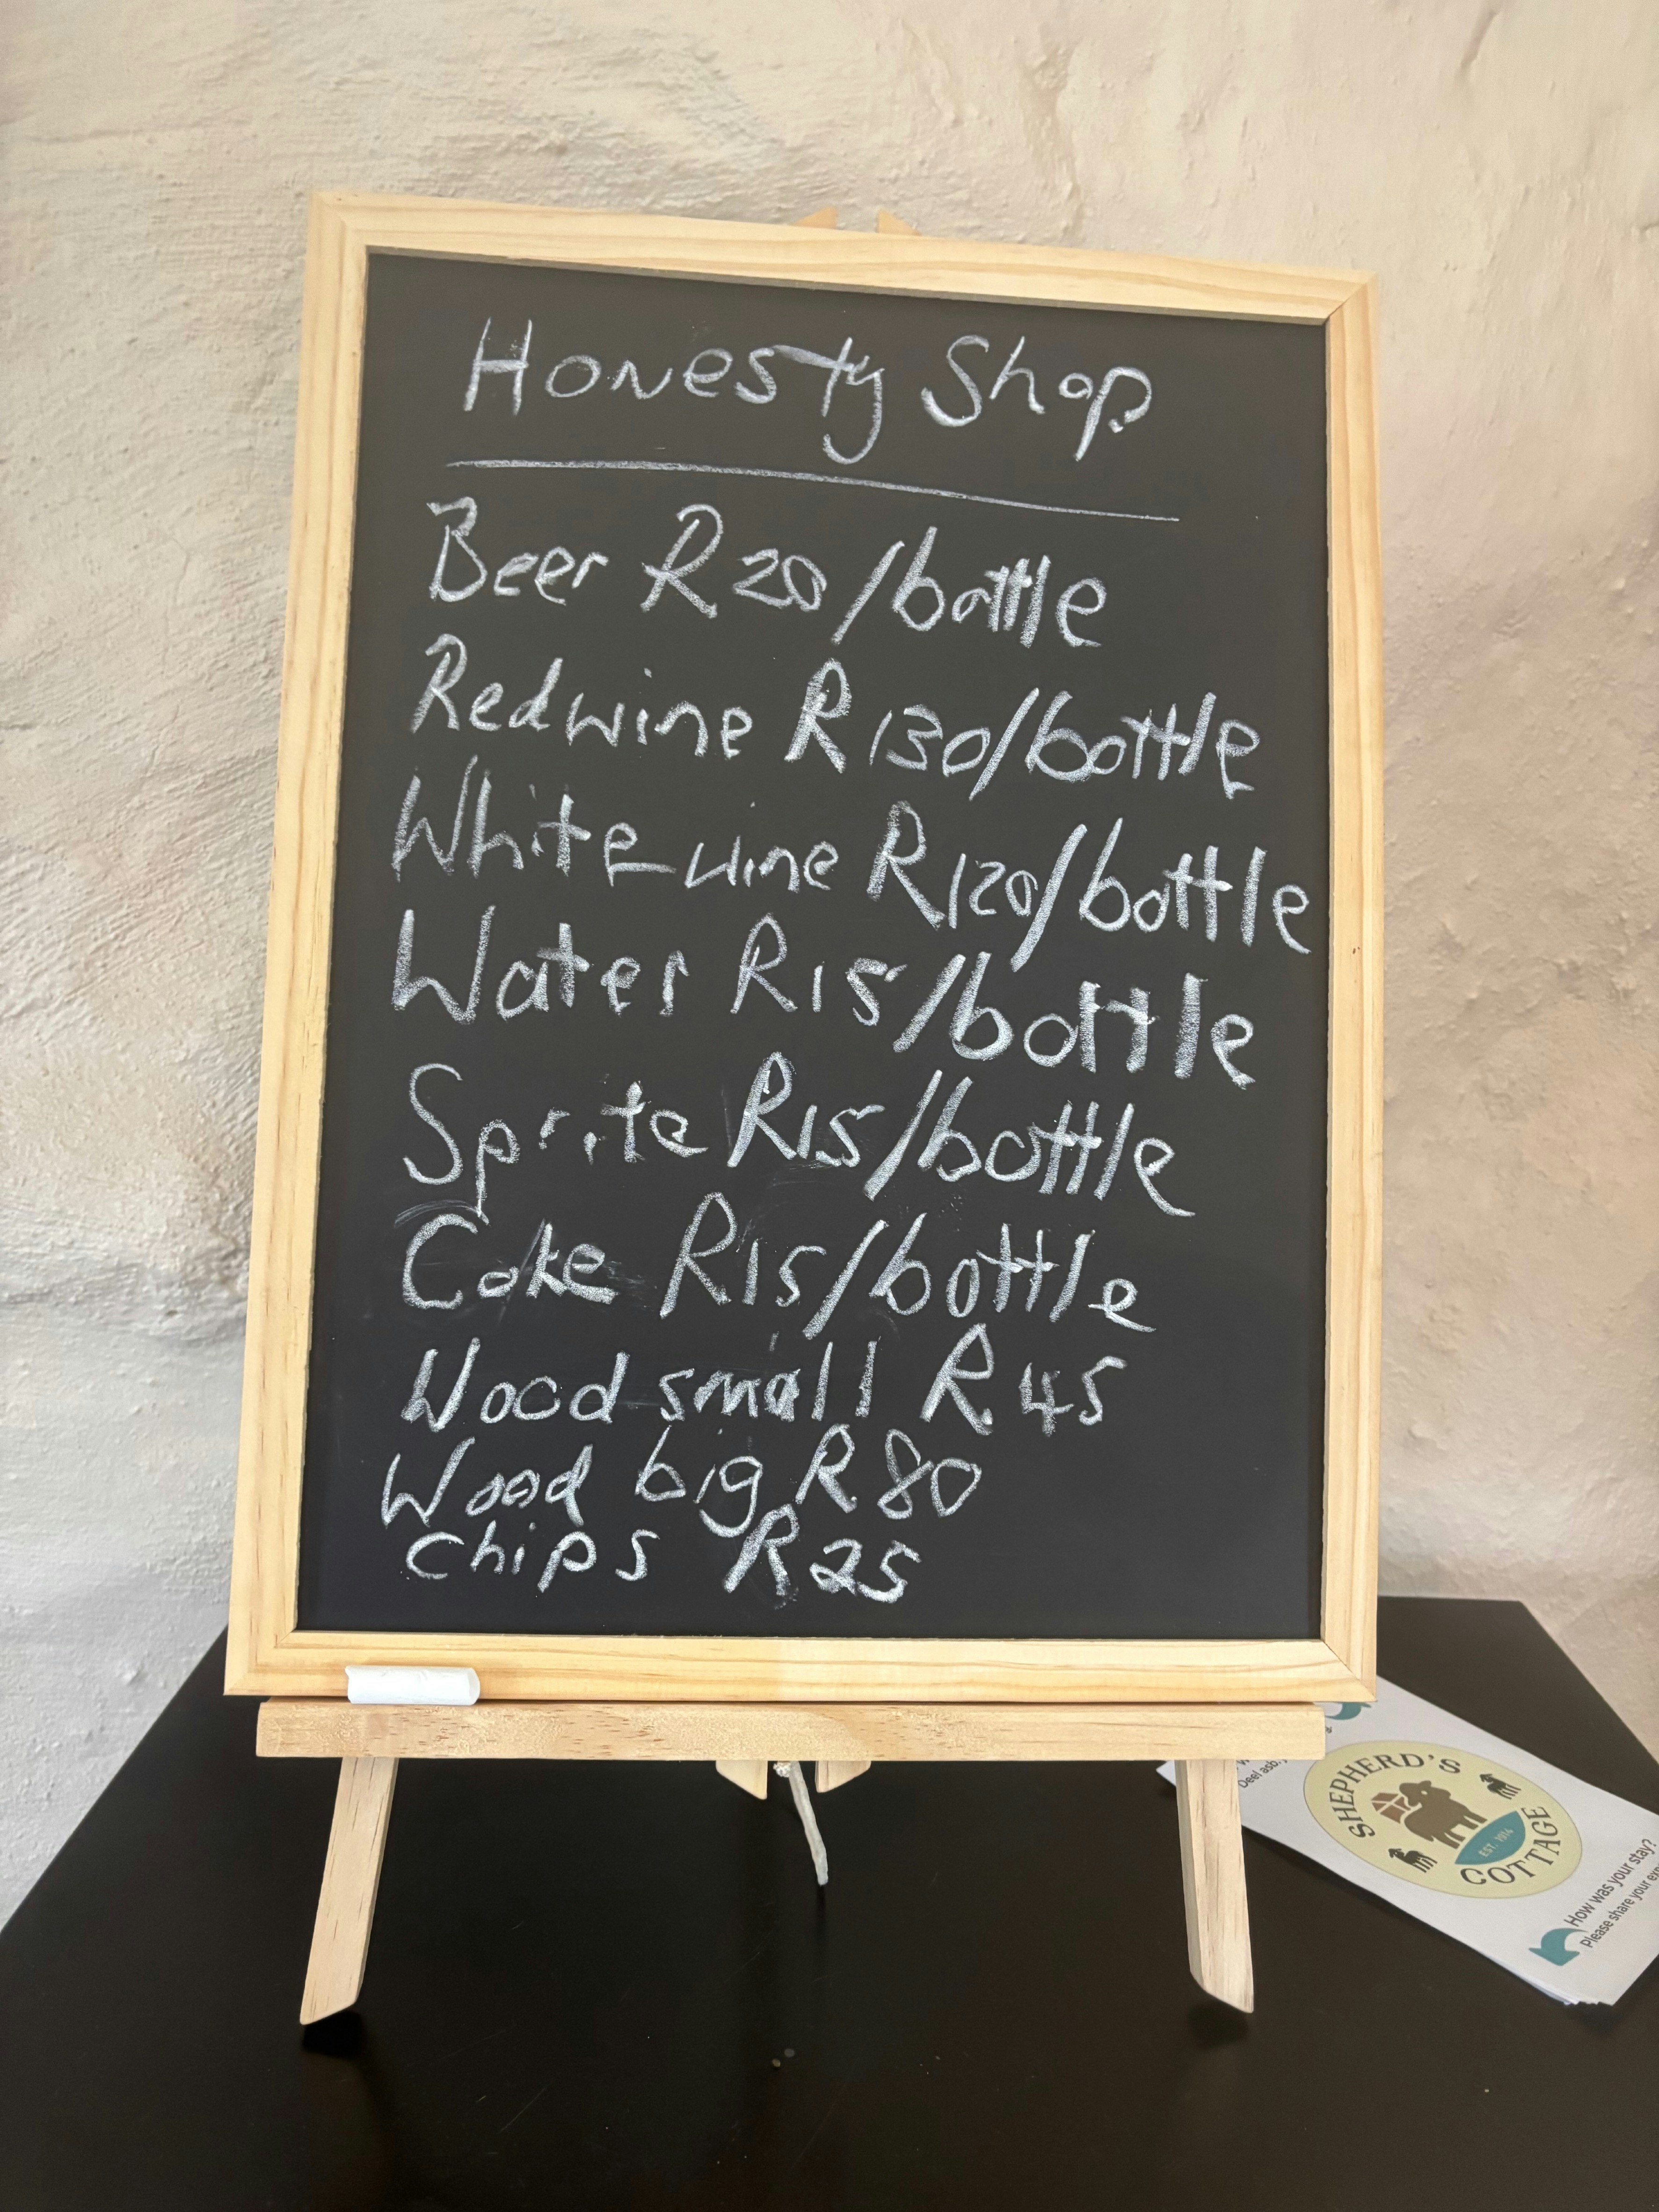 Honesty Shop
Beer R20/bottle
Redwine R130/bottle
White wine R120/bottle
Water R15/bottle
Sprite R15/bottle
Coke R15/bottle
Wood small R45
Wood big R80
Chips R25
SHEPHERD'S
COTTAGE
EST. 1914
How was your stay?
Please share your